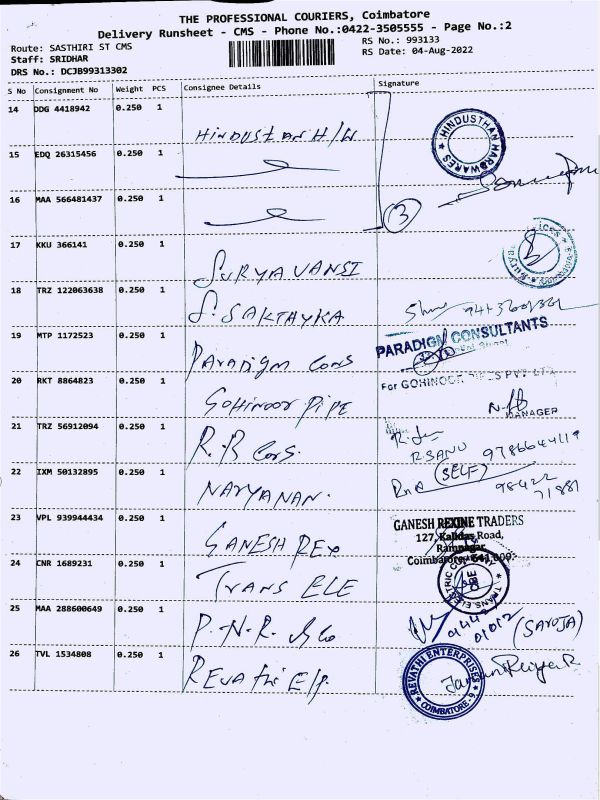 THE PROFESSIONAL COURIERS, Coimbatore
Delivery Runsheet - CMS - Phone No.:0422-3505555 - Page No.:2
Route: SASTHIRI ST CMS
RS No.: 993133
Staff: SRIDHAR
RS Date: 04-Aug-2022
DRS No.: DCJB99313302
S No Consignment No Weight PCS Consignee Details Signature
14 DDG 4418942 0.250 1 HINDUSTAN H/W
HINDUSTHAN HARDWARES
15 EDQ 26315456 0.250 1
16 MAA 566481437 0.250 1
3
17 KKU 366141 0.250 1 SURYAVANSI
18 TRZ 122063638 0.250 1 S. SAKTAYKA
19 MTP 1172523 0.250 1 Paradigm Cons
PARADIGM CONSULTANTS
20 RKT 8864823 0.250 1 GOHINOOR PIPE
For GOHINOOR PIPES PVT LTD
MANAGER
21 TRZ 56912094 0.250 1 R.B Cors.
R.SANU 9786644119
22 IXM 50132895 0.250 1 NARYANAN.
(SELF)
98422
71881
23 VPL 939944434 0.250 1 GANESH REX
GANESH REXINE TRADERS
127, Kalidas Road,
Ramnagar
Coimbatore - 641 009.
24 CNR 1689231 0.250 1 TRANS ELE
TRANS ELECTRIC CBE
25 MAA 288600649 0.250 1 P.N.R.
9442
01012 (SAROJA)
26 TVL 1534808 0.250 1 REVATHI E/P.
REVATHI ENTERPRISES
COIMBATORE-9